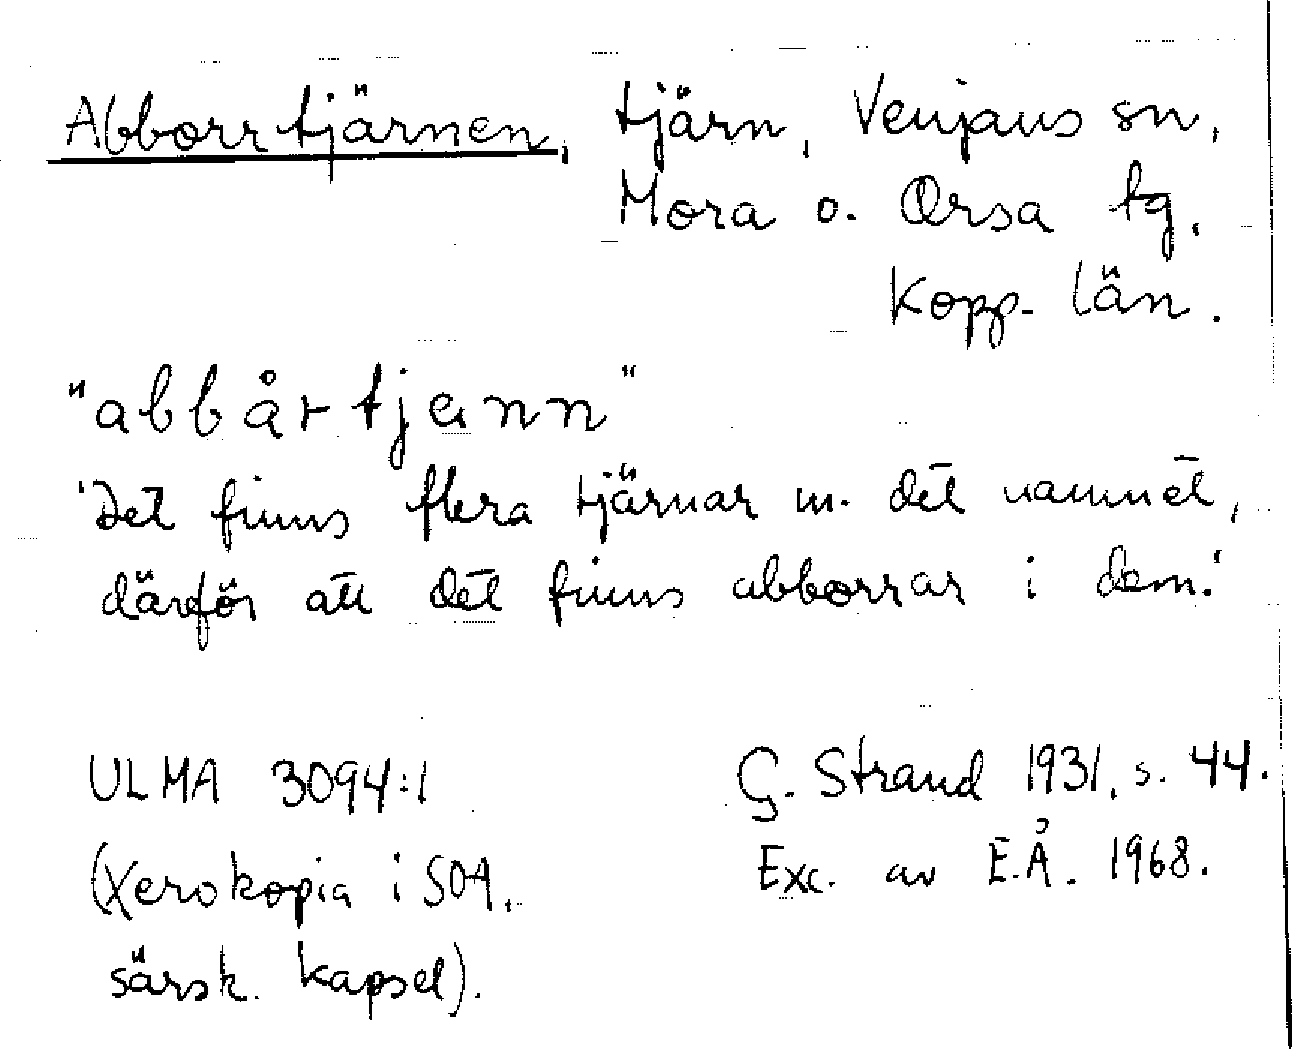 Abborrtjärnen, tjärn, Venjans sn,
Mora o. Orsa tg.
Kopp. län.
"abbårtjenn"
'Det finns flera tjärnar m. det namnet,
därför att det finns abborrar i dem.'
ULMA 3094:1
G. Strand 1931, s. 44.
(Xerokopia i SOA,
Exc. av E.Å. 1968.
särsk. kapsel).